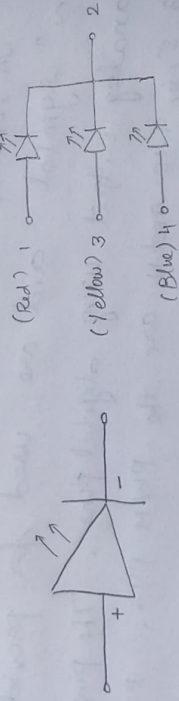 (Red) 1
2
(Yellow) 3
(Blue) 4
+ -